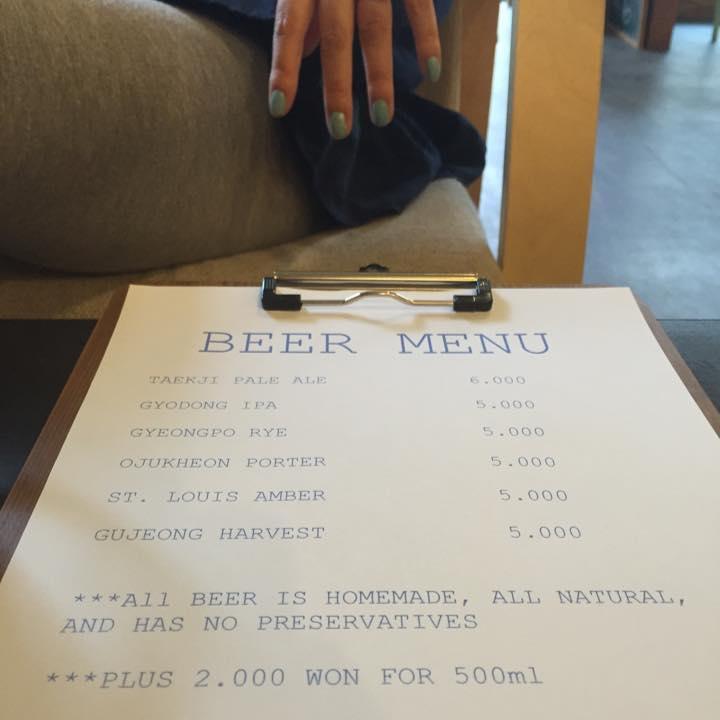 BEER MENU
TAEKJI PALE ALE 6.000
GYODONG IPA 5.000
GYEONGPO RYE 5.000
OJUKHEON PORTER 5.000
ST. LOUIS AMBER 5.000
GUJEONG HARVEST 5.000
***All BEER IS HOMEMADE, ALL NATURAL,
AND HAS NO PRESERVATIVES
***PLUS 2.000 WON FOR 500ml